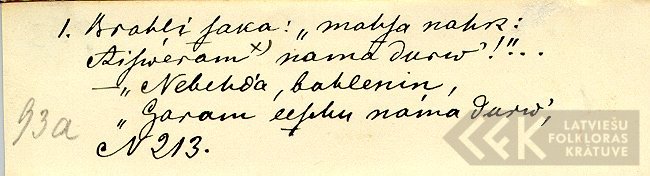 1. Brahli saka: „mahsa nahk:
Aisweram ˣ⁾ nama durw'!"..
—„Nebehda, bahlenin,
„Garam eeschu nama durw',
N 213.
93a
LATVIEŠU
FOLKLORAS
KRĀTUVE